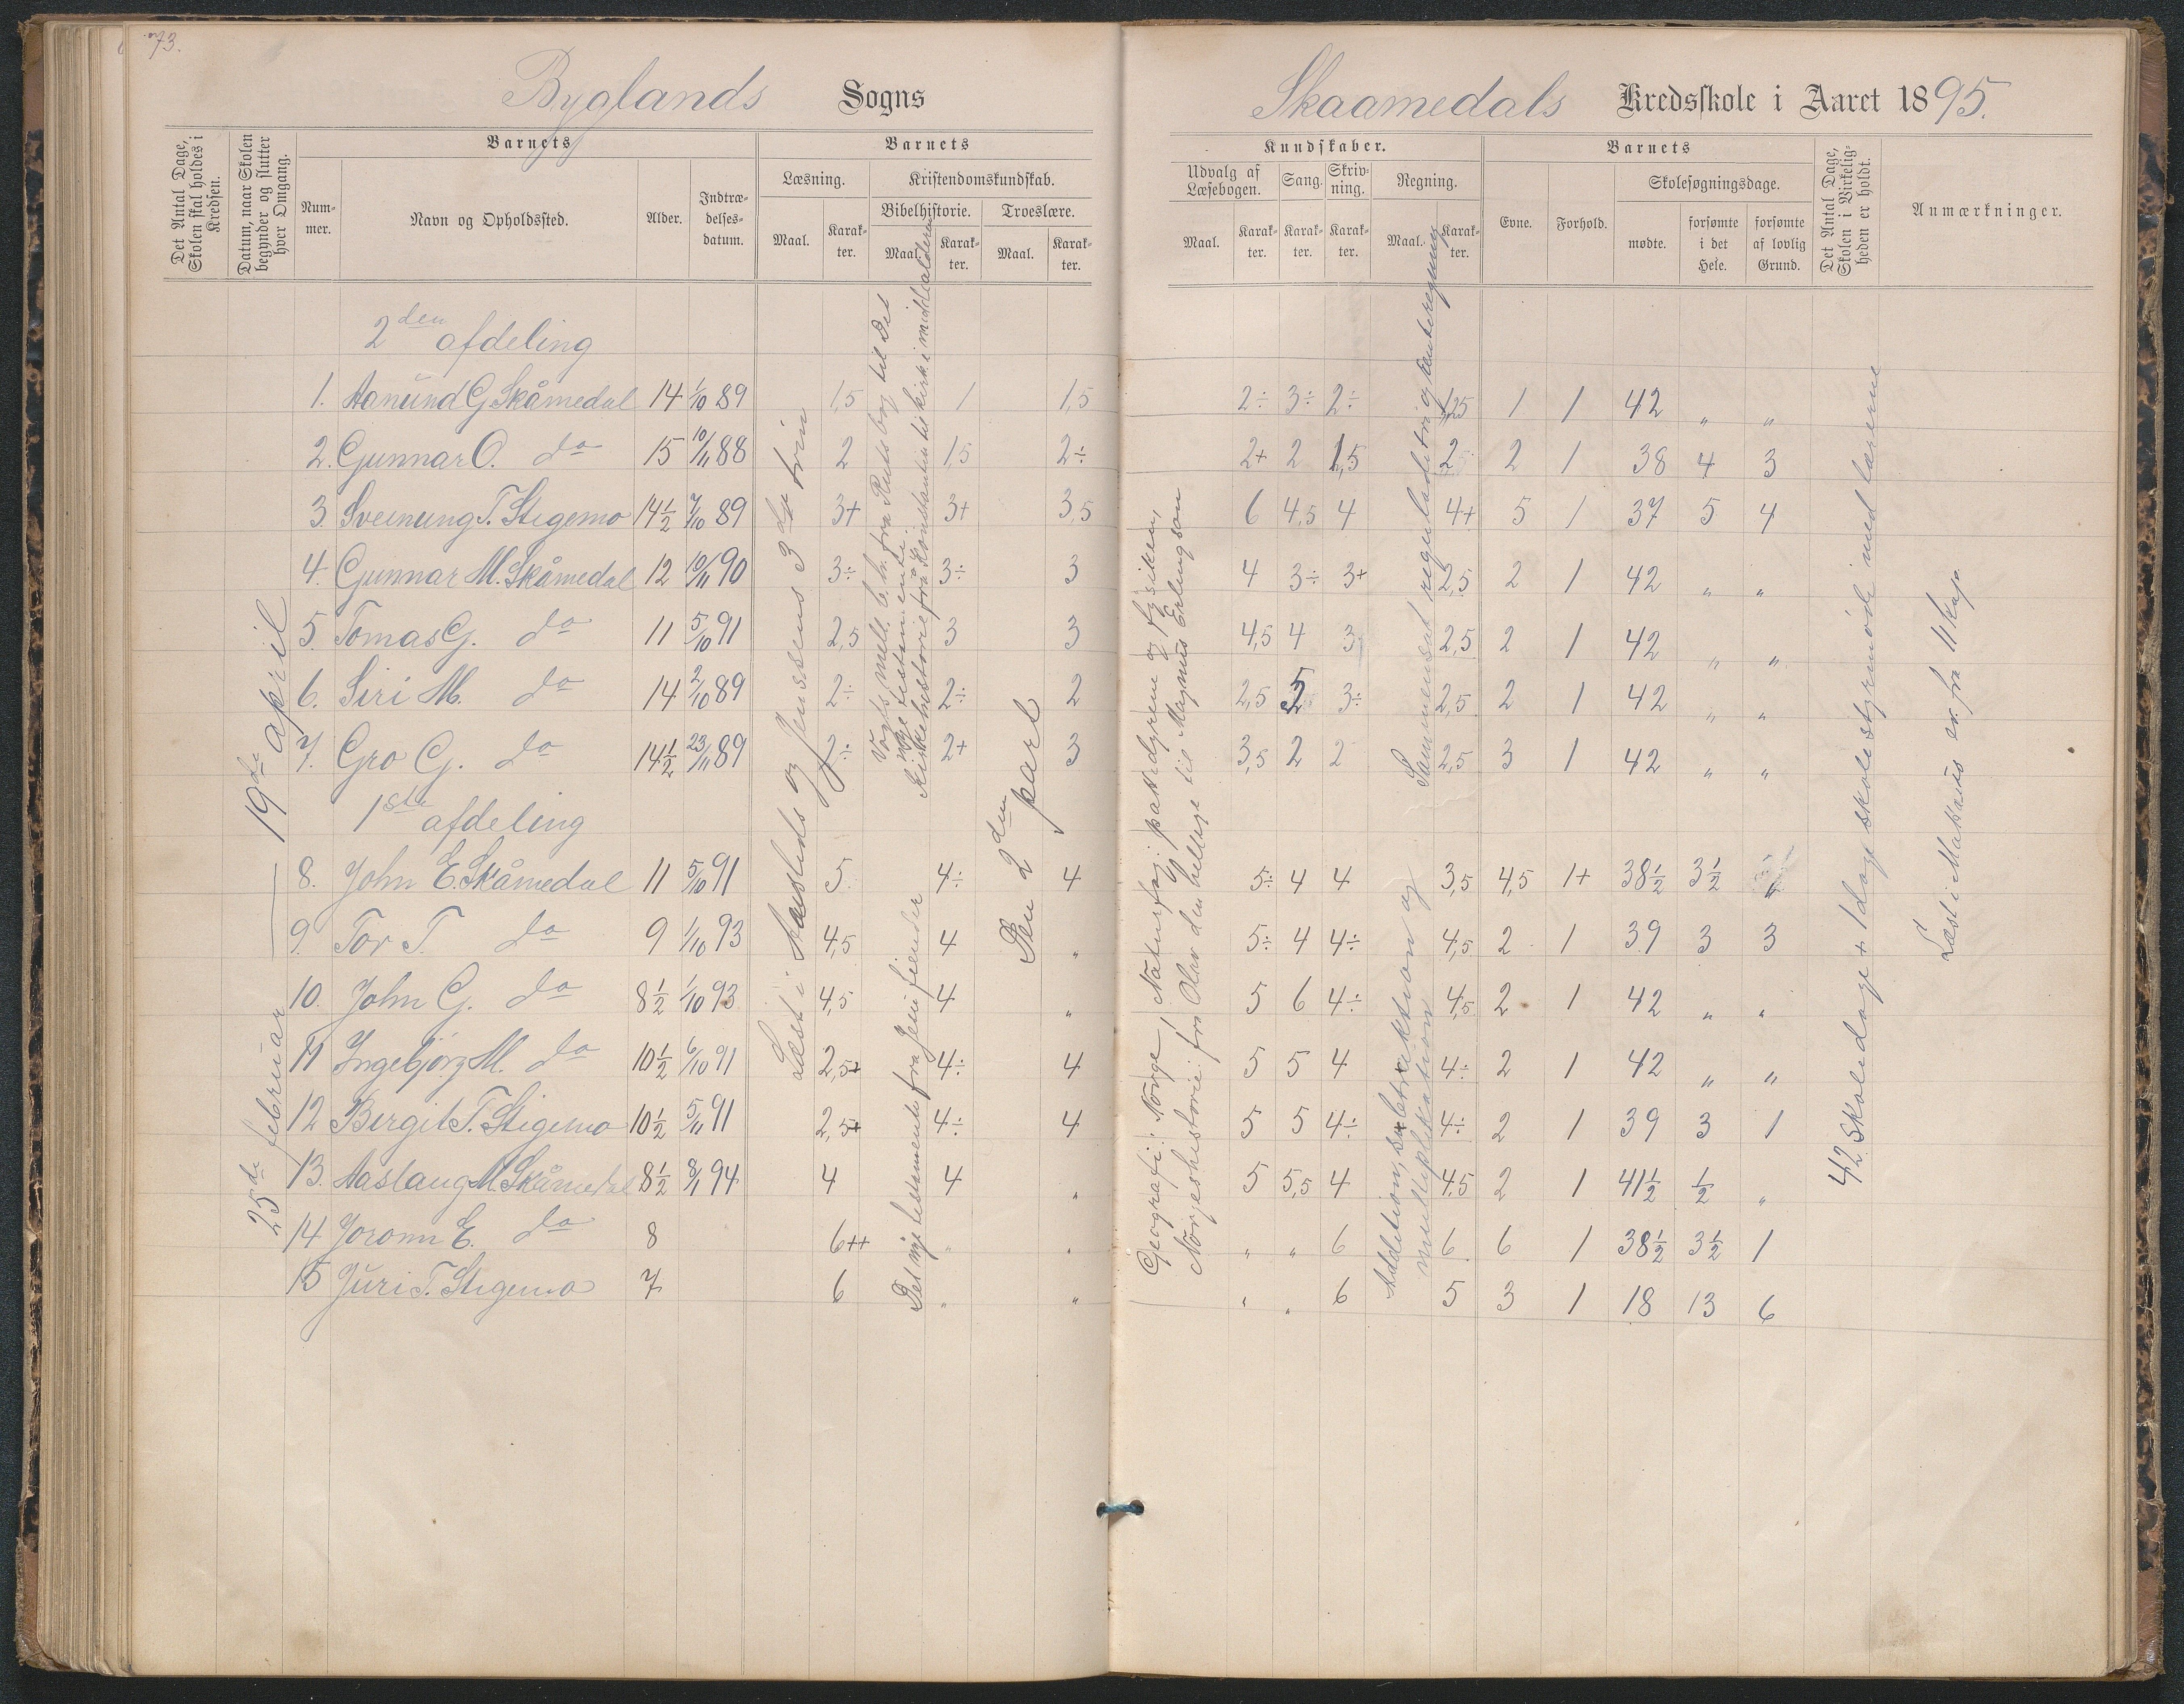 73.
Byglands Sogns
Skaamedals Kredsskole i Aaret 1895.
Det Antal Dage, Skolen skal holdes i Kredsen.
Datum, naar Skolen begynder og slutter hver Omgang.
Barnets
Nummer.
Navn og Opholdssted.
Alder.
Indtrædelsesdatum.
Barnets
Læsning.
Maal.
Karakter.
Kristendomskundskab.
Bibelhistorie.
Maal.
Karakter.
Troeslære.
Maal.
Karakter.
Kundskaber.
Udvalg af Læsebogen.
Maal.
Karakter.
Sang.
Karakter.
Skrivning.
Karakter.
Regning.
Maal.
Karakter.
Barnets
Evne.
Forhold.
Skolesøgningsdage.
mødte.
forsømte i det Hele.
forsømte af lovlig Grund.
Det Antal Dage, Skolen i Virkeligheden er holdt.
Anmærkninger.
25de februar — 19de april
2den afdeling
1. Aanund G. Skåmedal 14 1/10 89 1,5 1 1,5 2÷ 3÷ 2÷ 1,25 1 1 42 „ „
2. Gunnar O. do 15 10/11 88 2 1,5 2÷ 2+ 2 1,5 2 2 1 38 4 3
3. Sveinung T. Stigemo 14½ 7/10 89 3+ 3+ 3,5 6 4,5 4 4+ 5 1 37 5 4
4. Gunnar M. Skåmedal 12 10/11 90 3÷ 3÷ 3 4 3÷ 3+ 2,5 2 1 42 „ „
5. Tomas G. do 11 5/10 91 2,5 3 3 4,5 4 3 2,5 2 1 42 „ „
6. Siri M. do 14 2/10 89 2÷ 2÷ 2 2,5 2,5 3÷ 2,5 2 1 42 „ „
7. Gro G. do 14½ 23/11 89 2÷ 2+ 3 3,5 2 2 2,5 3 1 42 „ „
1ste afdeling
8. John E. Skåmedal 11 5/10 91 5 4÷ 4 5÷ 4 4 3,5 4,5 1+ 38½ 3½ „
9. Tor T. do 9 1/10 93 4,5 4 „ 5÷ 4 4÷ 4,5 2 1 39 3 3
10. John G. do 8½ 1/10 93 4,5 4 „ 5 6 4÷ 4,5 2 1 42 „ „
11 Ingebjørg M. do 10½ 6/10 91 2,5+ 4÷ 4 5 5 4 4÷ 2 1 42 „ „
12 Bergit T. Stigemo 10½ 5/11 91 2,5+ 4÷ 4 5 5 4÷ 4÷ 2 1 39 3 1
13. Aaslaug M. Skåmedal 8½ 8/1 94 4 4 „ 5 5,5 4 4,5 2 1 41½ ½ „
14 Joronn E. do 8 6++ „ „ „ „ 6 6 6 1 38½ 3½ 1
15 Juri T. Stigemo 7 6 „ „ „ „ 6 5 3 1 18 13 6
Læst i Austlids og Jenssens 3die trin
Vogts mell. b. h. fra Ruts bog til Det
nye testamente.
Kirkehistorie fra Konstantin til kirk. i middelalderen
Det nye testamente fra Jesu fiender
Den 2den part
Geografi: Norge, Naturfag: pattedyrene og fysiken,
Norgeshistorie: fra Olav den hellige til Magnus Erlingson
Sammensat reguladetri og renteregning
Addition, subtraktion og
multiplikation
42 skoledage + 1 dags skolestyremøde med lærerne
Læst i Mattæus ev. fra 11 kap.